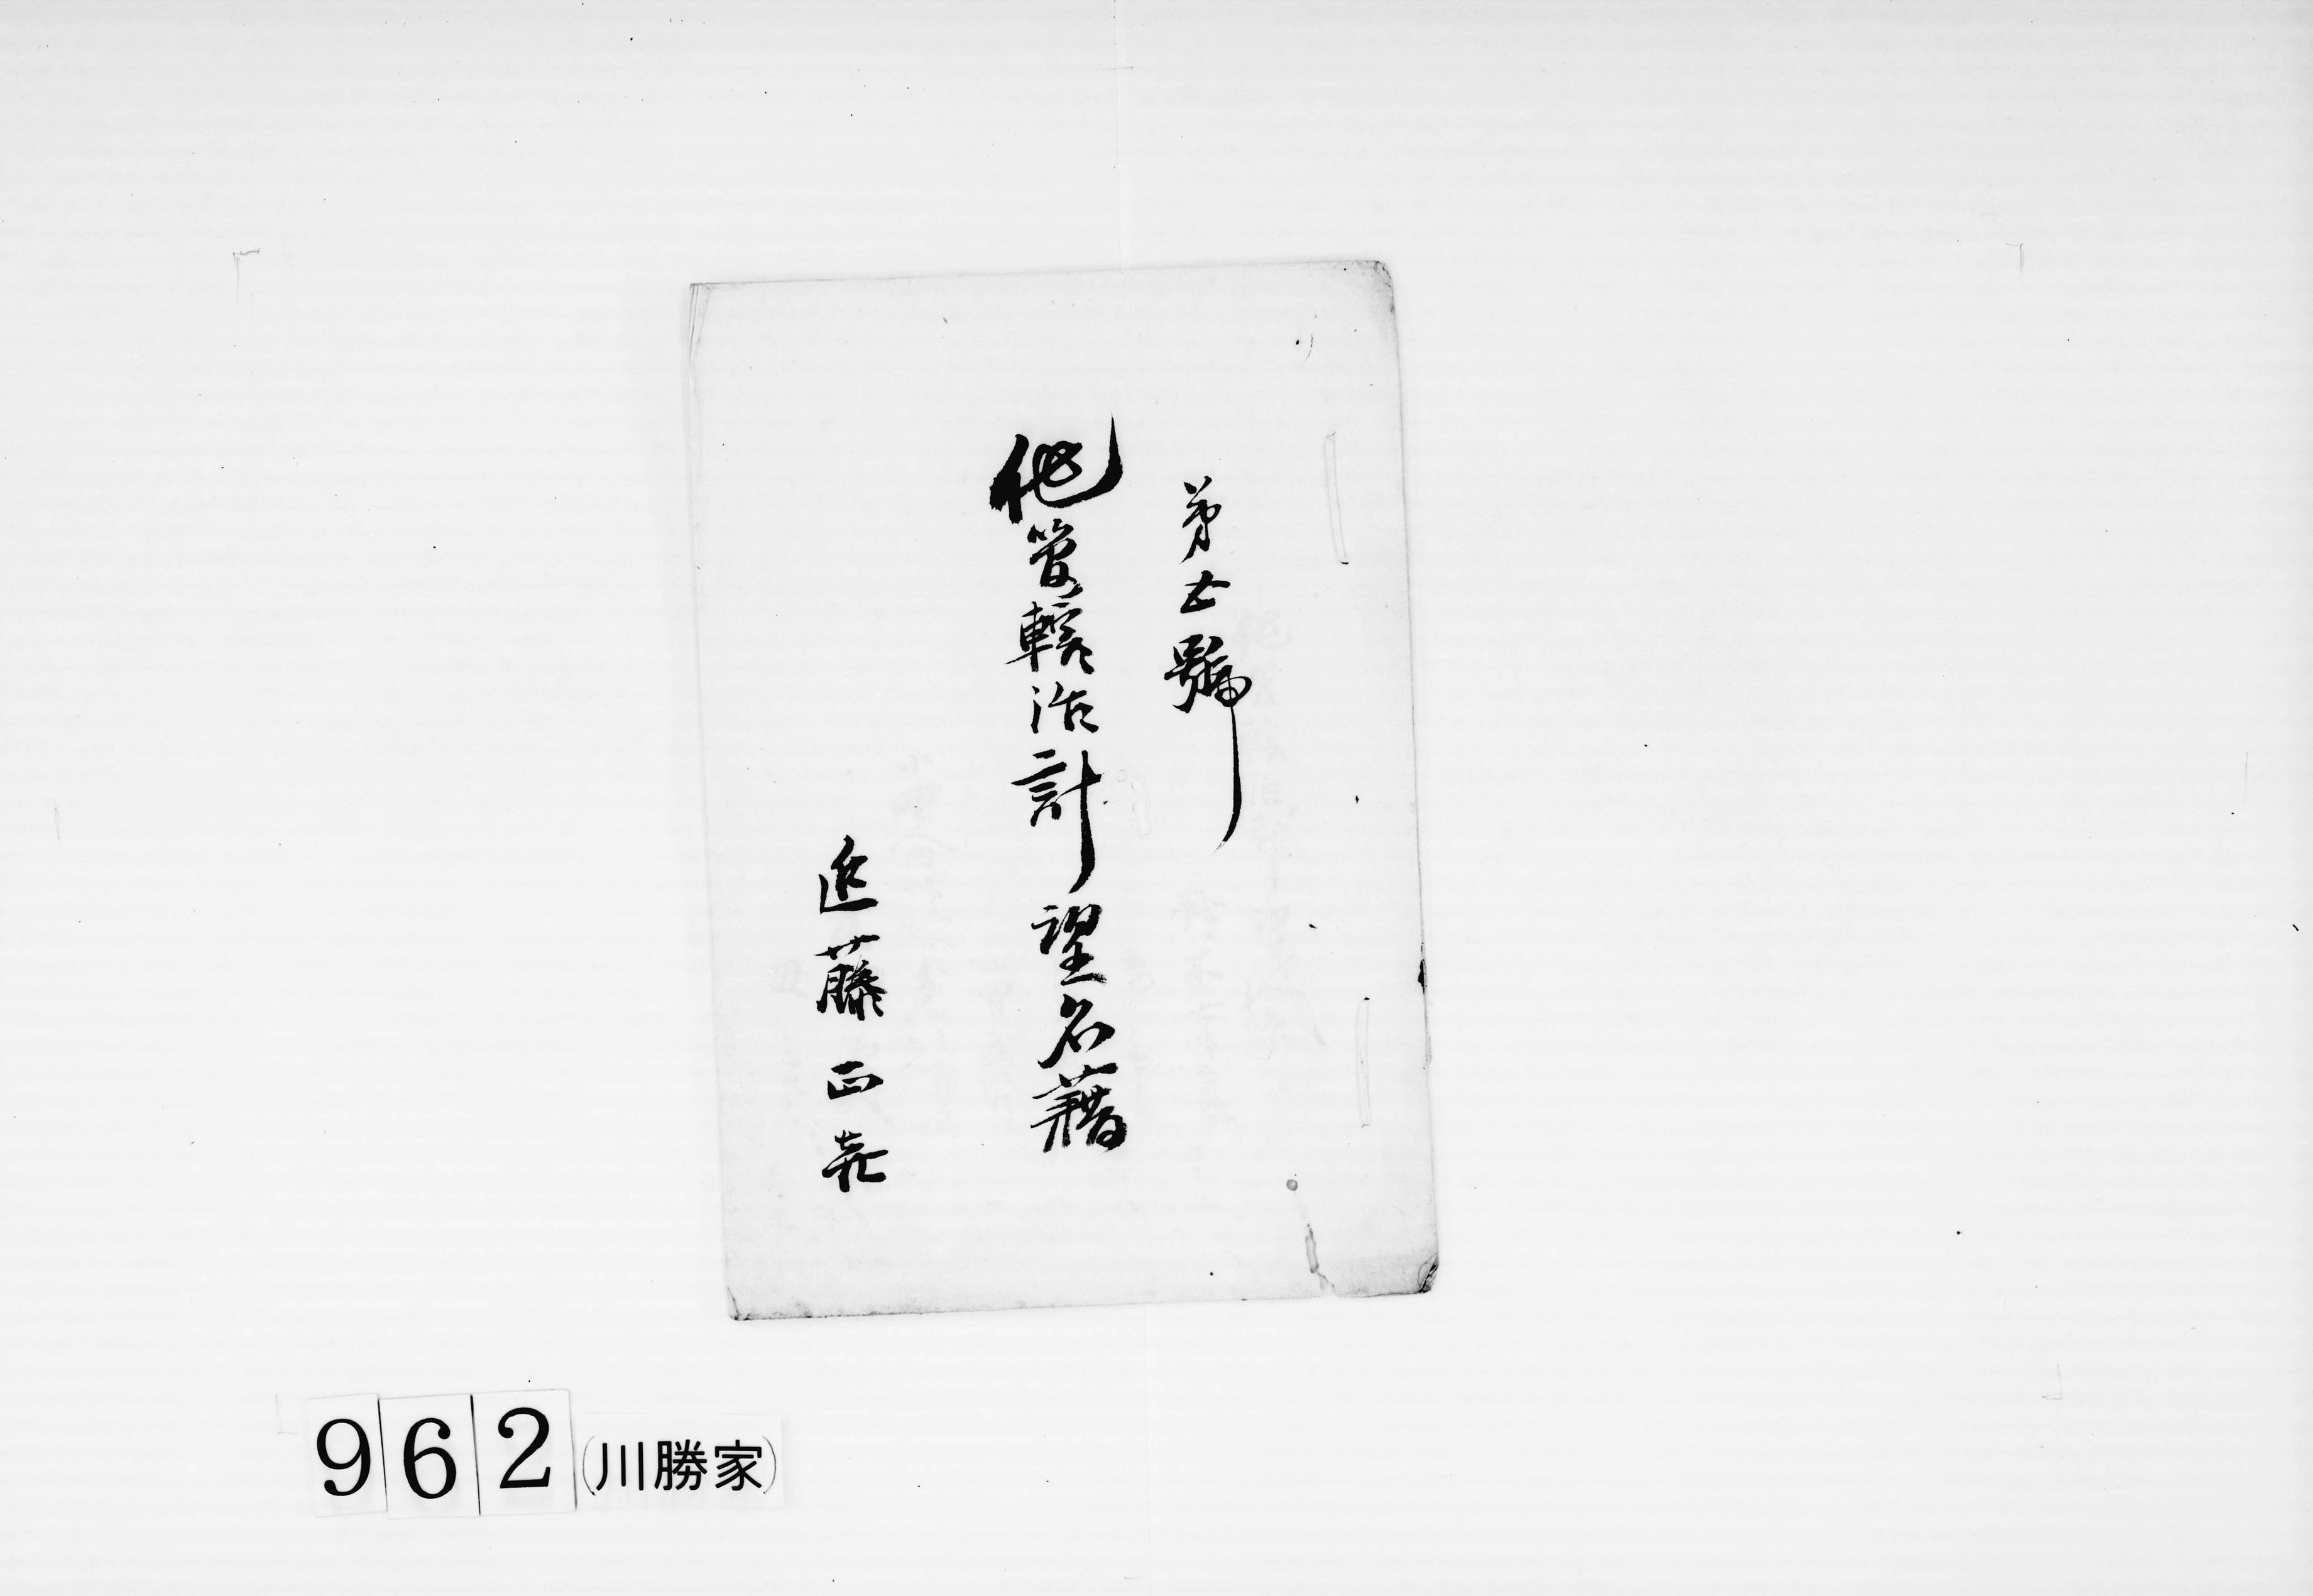 第五號
他管轄活計望名籍
近藤正𠮷
962(川勝家)